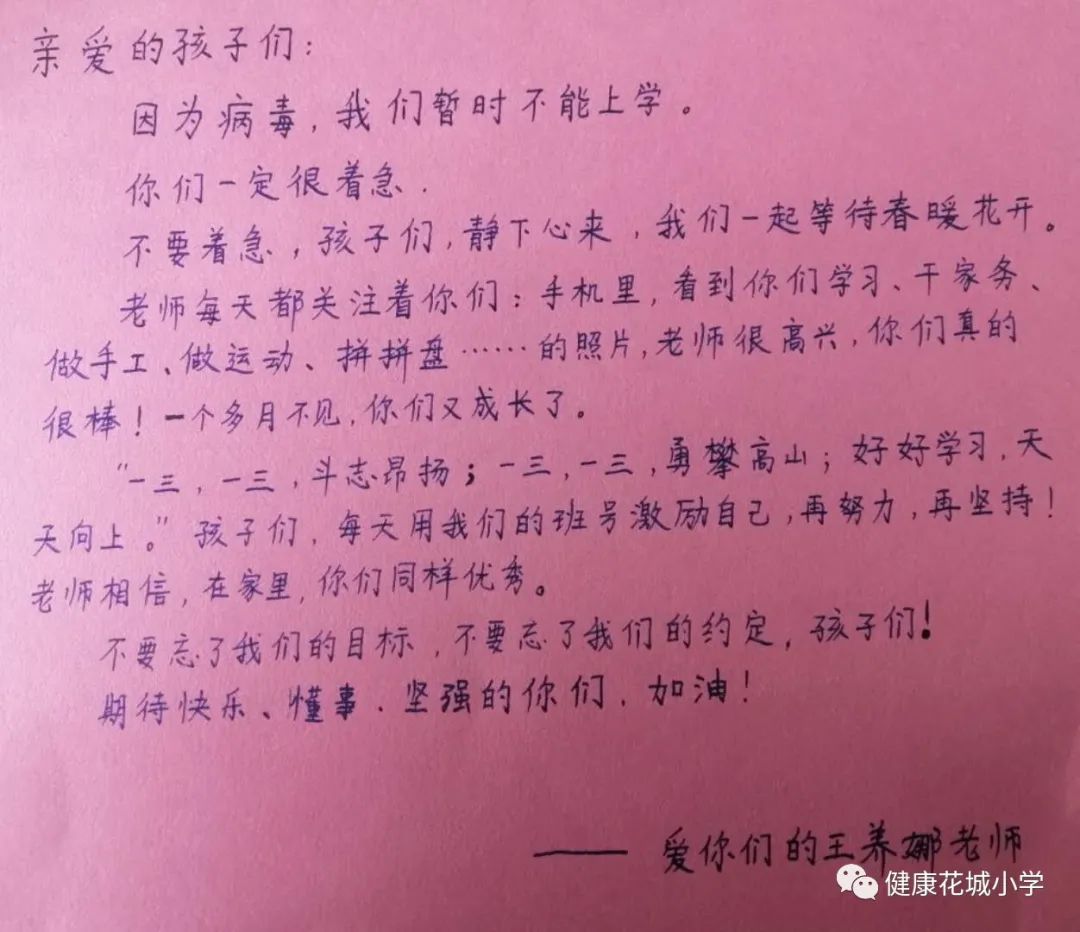 亲爱的孩子们：
因为病毒，我们暂时不能上学。
你们一定很着急．
不要着急，孩子们，静下心来，我们一起等待春暖花开。
老师每天都关注着你们：手机里，看到你们学习、干家务、
做手工、做运动、拼拼盘……的照片，老师很高兴，你们真的
很棒！一个多月不见，你们又成长了。
“一三，一三，斗志昂扬；一三，一三，勇攀高山；好好学习，天
天向上。”孩子们，每天用我们的班号激励自己，再努力，再坚持！
老师相信，在家里，你们同样优秀。
不要忘了我们的目标，不要忘了我们的约定，孩子们！
期待快乐、懂事．坚强的你们，加油！
——爱你们的王养娜老师
健康花城小学